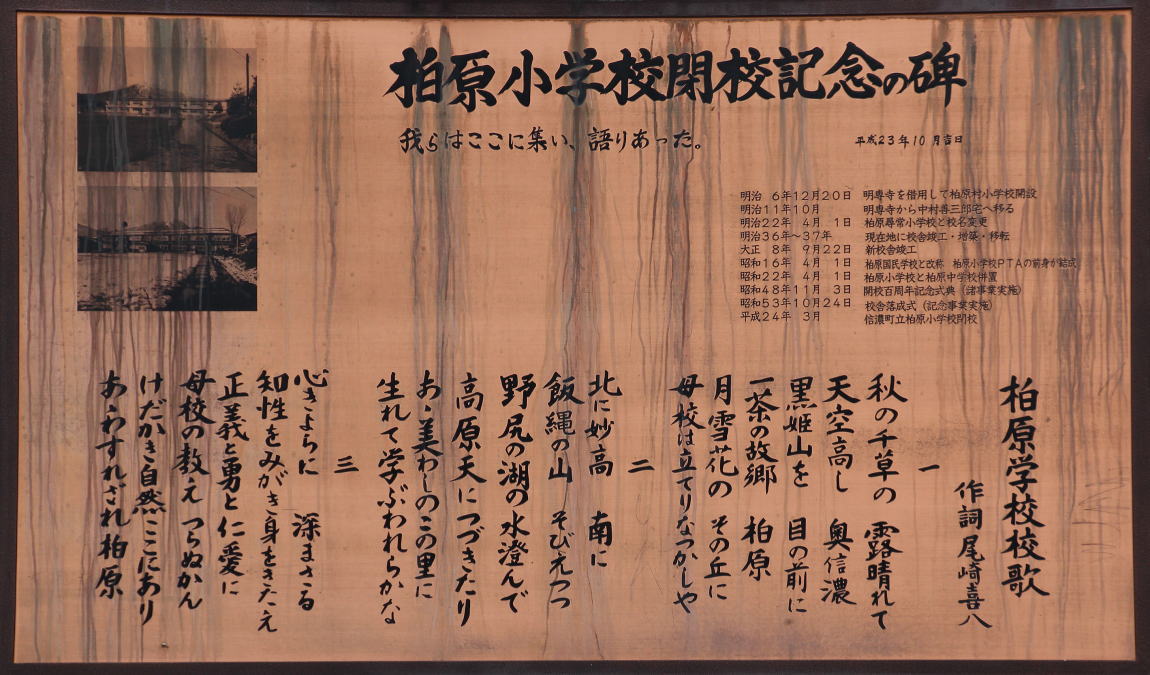 柏原小学校閉校記念の碑
我らはここに集い、語りあった。
平成23年10月吉日
明治　6年12月20日　明専寺を借用して柏原村小学校開設
明治11年10月　明専寺から中村善三郎宅へ移る
明治22年　4月　1日　柏原尋常小学校と校名変更
明治36年～37年　現在地に校舎竣工・増築・移転
大正　8年　9月22日　新校舎竣工
昭和16年　4月　1日　柏原国民学校と改称　柏原小学校PTAの前身が結成
昭和22年　4月　1日　柏原小学校と柏原中学校併置
昭和48年11月　3日　開校百周年記念式典（諸事業実施）
昭和53年10月24日　校舎落成式（記念事業実施）
平成24年　3月　信濃町立柏原小学校閉校
柏原学校校歌
作詞　尾崎喜八
一
秋の千草の　露晴れて
天空高し　奥信濃
黒姫山を　目の前に
一茶の故郷　柏原
月雪花の　その丘に
母校は立てりなつかしや
二
北に妙高　南に
飯縄の山　そびえつつ
野尻の湖の　水澄んで
高原天につづきたり
あゝ美わしのこの里に
生れて学ぶわれらかな
三
心きよらに　深まさる
知性をみがき身をきたえ
正義と勇と仁愛に
母校の教え　つらぬかん
けだかき自然ここにあり
あゝわすれざれ柏原